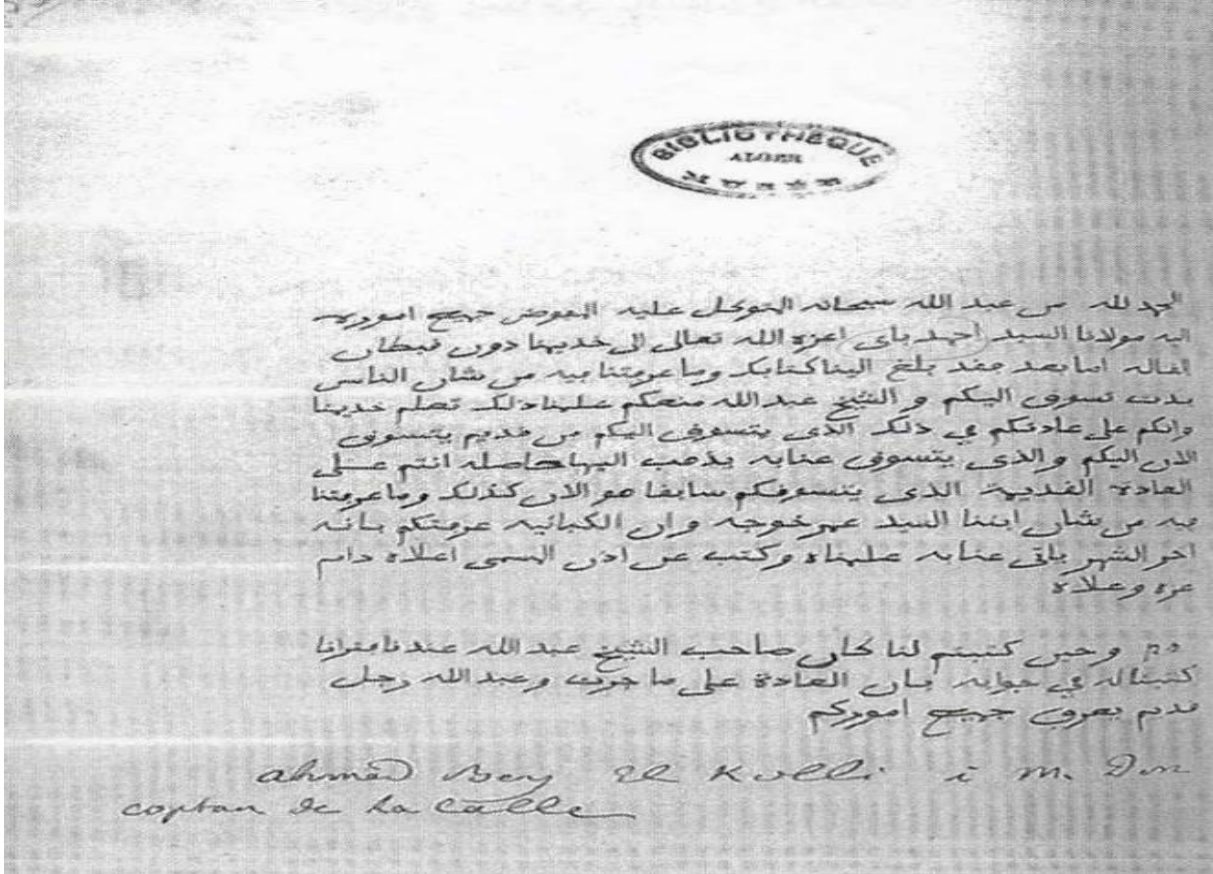 BIBLIOTHEQUE
ALGER
الحمد لله من عبد الله سبحانه المتوكل عليه المفوض جميع اموره
اليه مولانا السيد احمد باي اعزه الله تعالى الى خديمنا دون قبطان
القاله اما بعد فقد بلغ الينا كتابك وما عرفتنا فيه من شان الناس
بدت تسوق اليكم و الشيخ عبد الله منعكم علمنا ذلك تعلم خديمنا
وانكم على عادتكم في ذلك الذي يتسوق اليكم من قديم يتسوق
الان اليكم والذي يتسوق عنابه يذهب اليها حاصله انتم على
العادة القديمة الذي يتسوقكم سابقا هو الان كذلك وما عرفتنا
به من شان ابننا السيد عمر خوجه وان الكبانيه عرفتكم بانه
اخر الشهر ياتي عنابه علمناه وكتب عن اذن المسمى اعلاه دام
عزه وعلاه
وحين كتبتم لنا كان صاحب الشيخ عبد الله عندنا
كتبنا له في جوابه بان العادة على ما جرت وعبد الله رجل
قديم يعرف جميع اموركم
ahmed Bey El Kolli à m. Don
coptan de La Calle